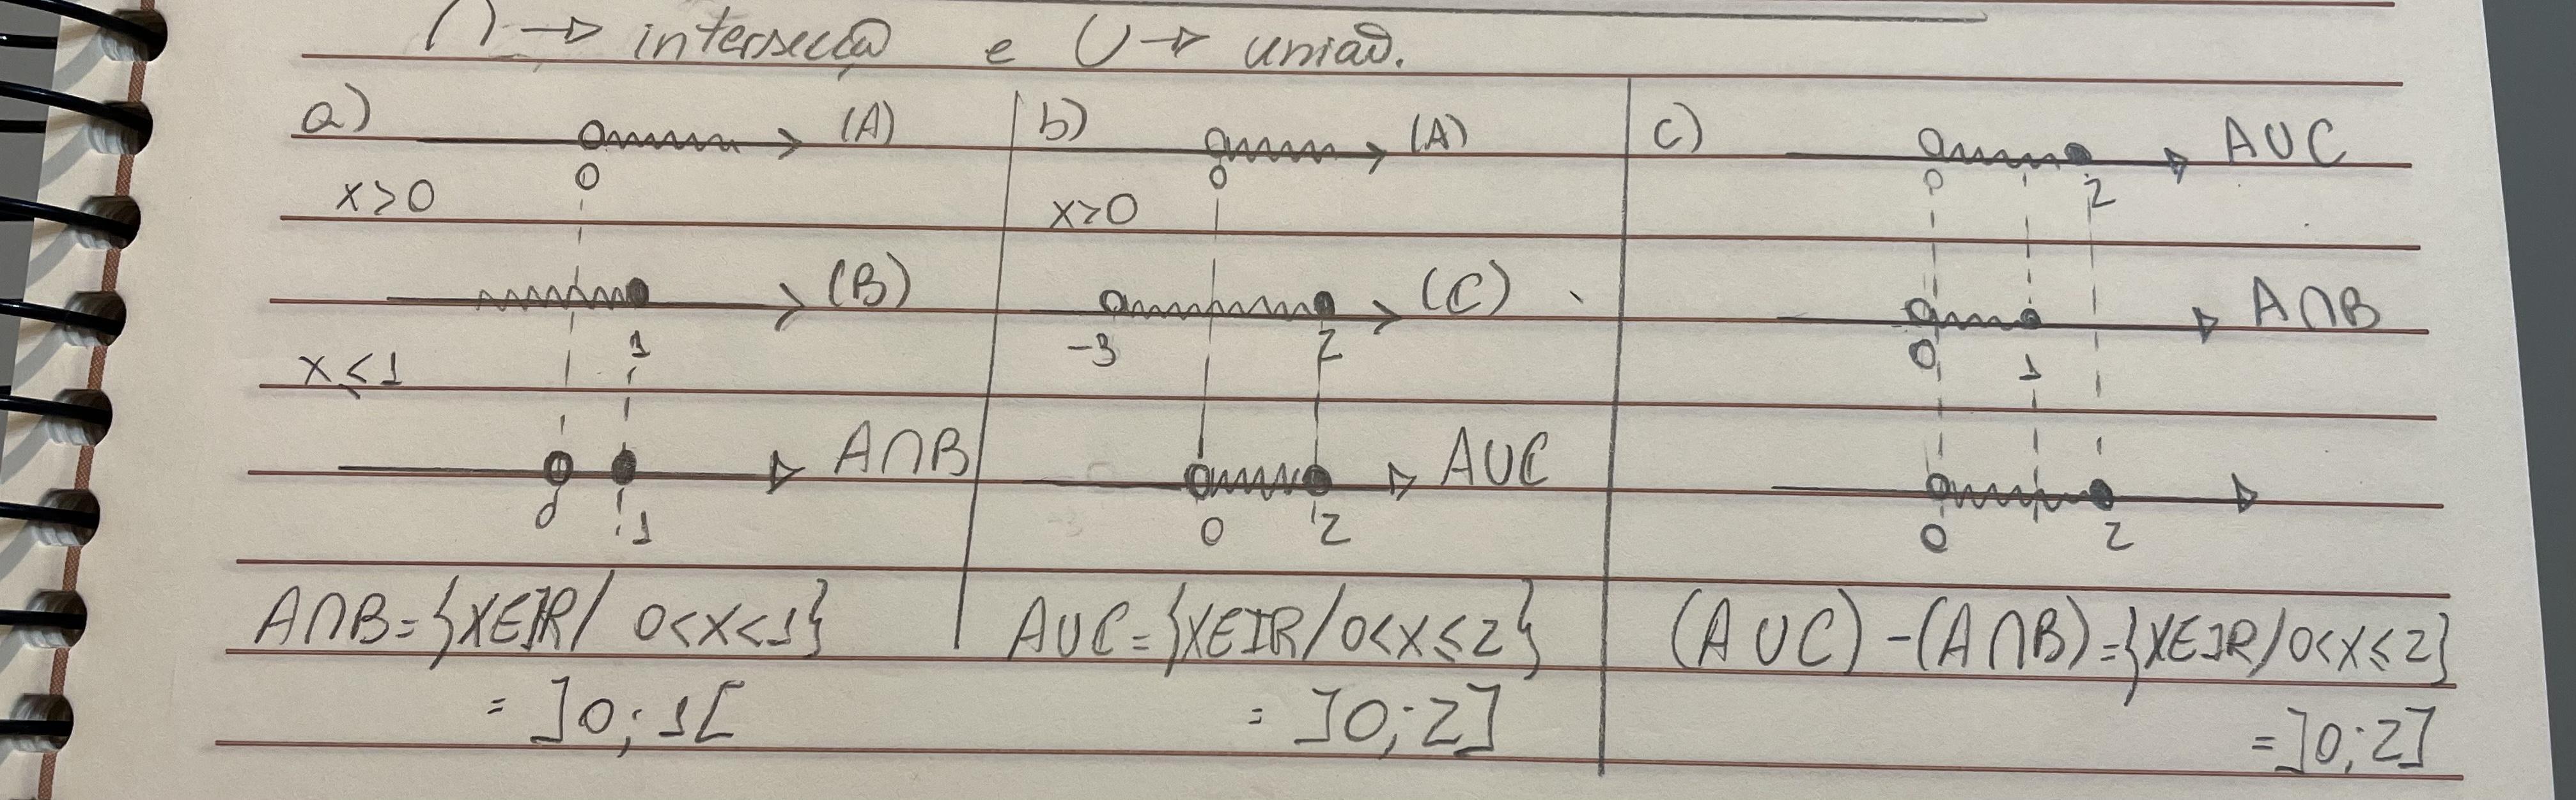 ∩ → intersecção e ∪ → união.
a) (A)
0
x>0
(B)
1
x≤1
A∩B
0 1
A∩B={XEIR/ 0<X<1}
= ]0;1[
b) (A)
0
x>0
(C)
-3 2
AUC
0 2
AUC={XEIR/0<X≤2}
= ]0;2]
c) AUC
0 2
A∩B
0 1
0 2
(AUC)-(A∩B)={XEIR/0<X≤2}
=]0;2]